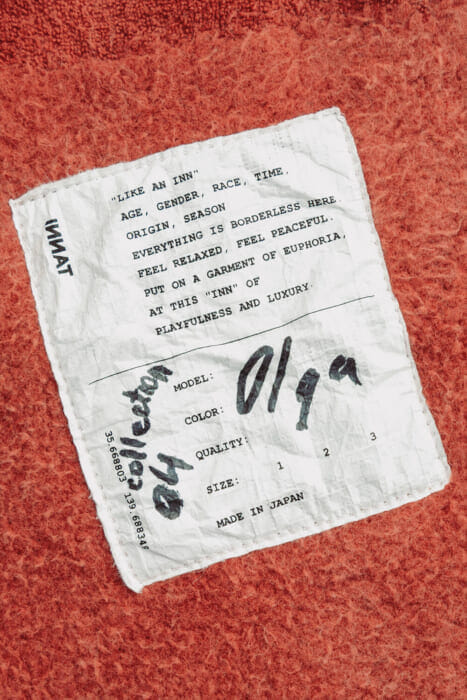 INNAT
"LIKE AN INN"
AGE, GENDER, RACE, TIME,
ORIGIN, SEASON
EVERYTHING IS BORDERLESS HERE
FEEL RELAXED, FEEL PEACEFUL.
PUT ON A GARMENT OF EUPHORIA,
AT THIS "INN" OF
PLAYFULNESS AND LUXURY.
MODEL: Olga
COLOR:
QUALITY:
SIZE: 1 2 3
MADE IN JAPAN
collection
35.668803 139.68834